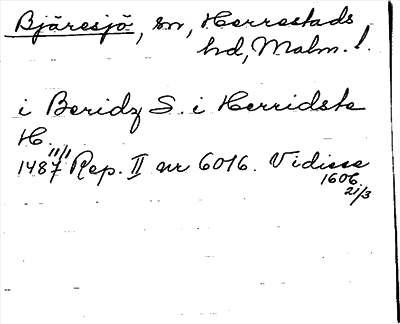 Bjäresjö, sn, Herrestads
hd, Malm. l.
i Beridz S. i Herridsta
H.
1487 11/1 Rep. II nr 6016. Vidisse
1606 21/3